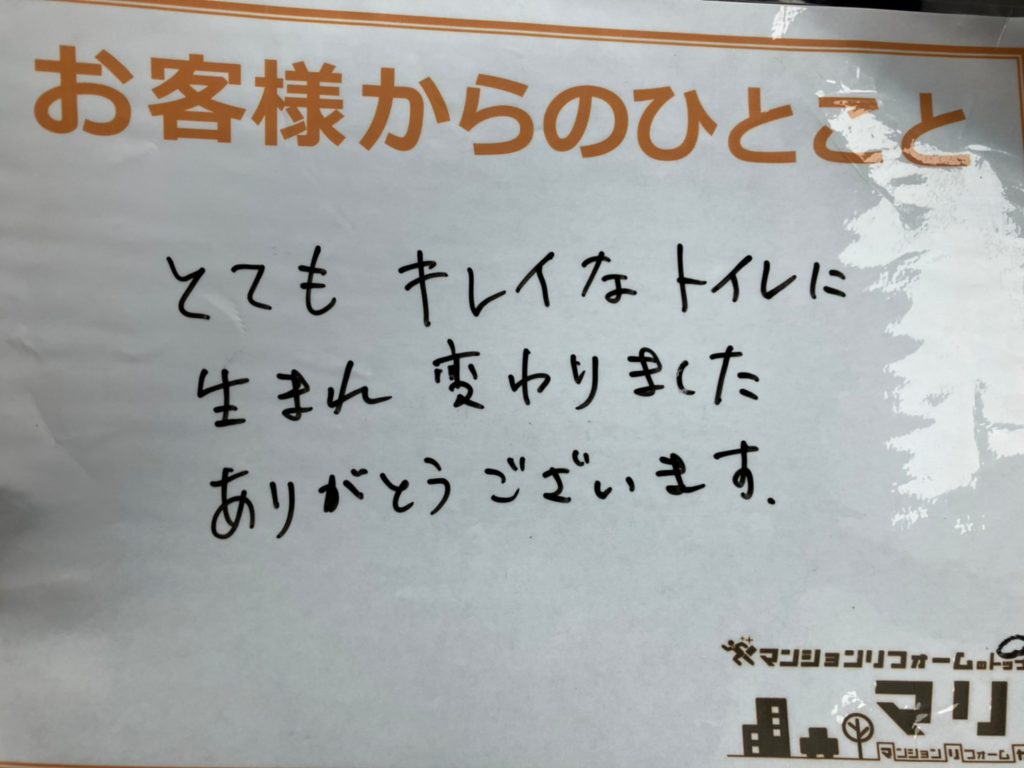 お客様からのひとこと
とても キレイな トイレに
生まれ 変わりました
ありがとうございます.
マンションリフォームのトップ
マリ
マンションリフォーム